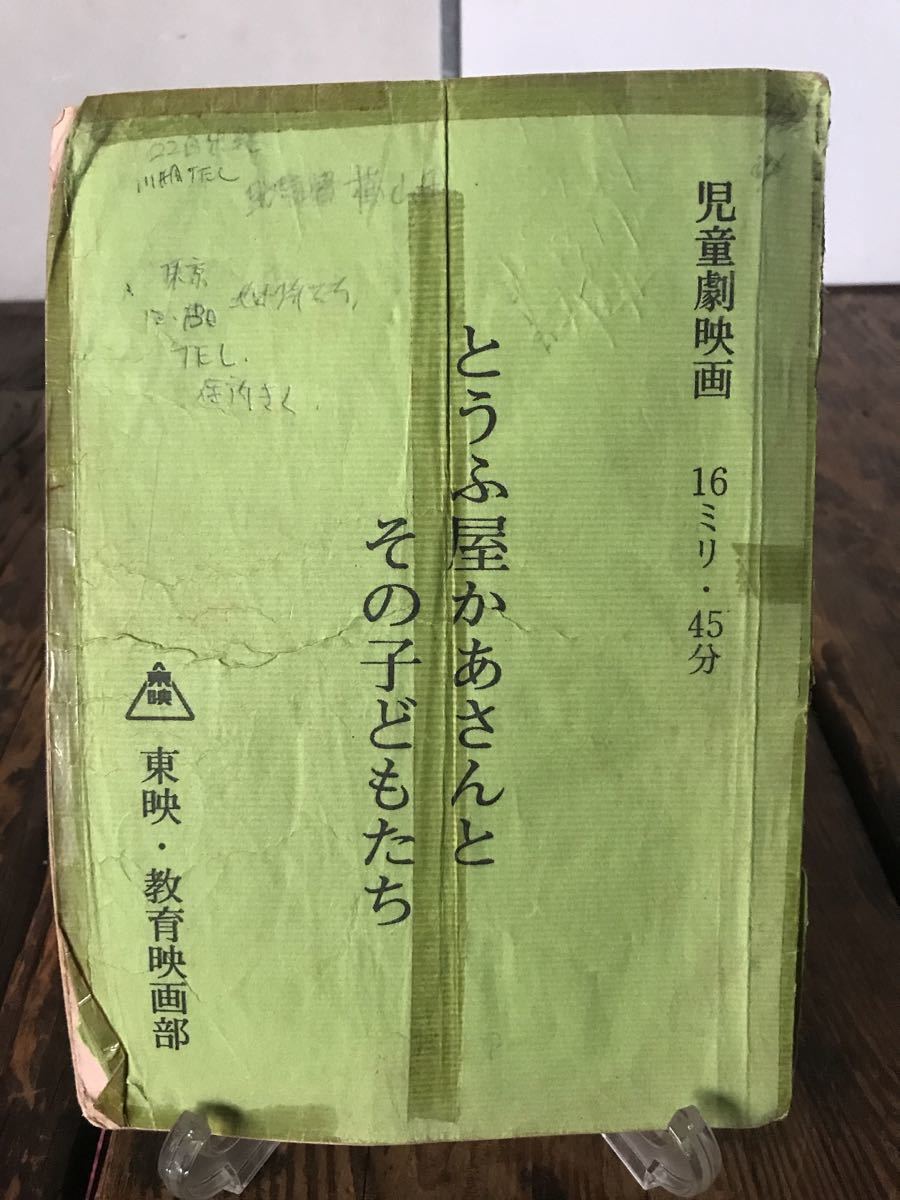 児童劇映画 16ミリ・45分
とうふ屋かあさんと
その子どもたち
東映
東映・教育映画部
TEL
東京
TEL.